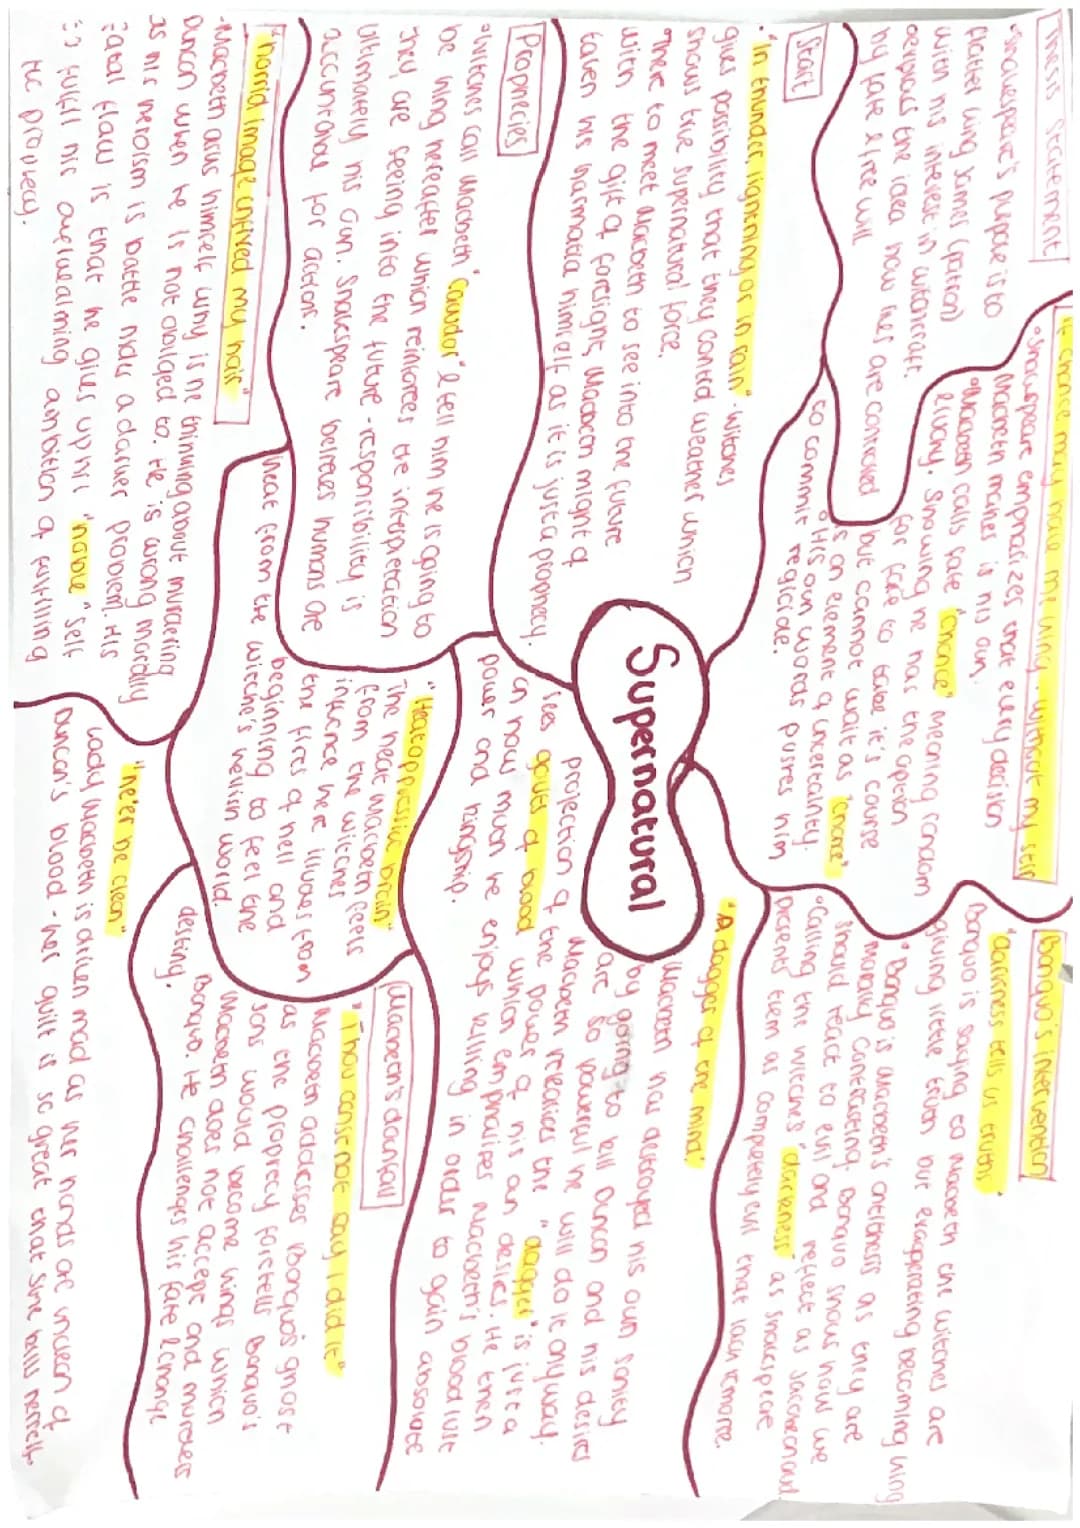 Thesis statement
"Shakespeare's purpose is to
flatter King James (patron)
with his interest in witchcraft.
Oedipous the idea how lives are controlled
by fate & free will
Start
"In thunder, lightning or in rain" - witches
gives possibility that they control weather which
shows the supernatural force.
There to meet Macbeth to see into the future
with the gift of foresight, Macbeth might of
taken his harmatia himself as it is just a prophecy.
Prophecies
Witches call Macbeth "Cawdor" & tell him he is going to
be king hereafter which reinforces the interpretation
they are seeing into the future - responsibility is
ultimately his own. Shakespeare believes humans are
accountable for actions.
"horrid image unfixed my hair"
Macbeth asks himself why is he thinking about murdering
Duncan when he is not obliged to. He is wrong morally
as his heroism is battle hides a darker problem. His
fatal flaw is that he gives up his "noble" self
to fulfill his overwhelming ambition of fulfilling
the prophecy.
Supernatural
If chance may have me king.. without my stir
Shakespeare emphasizes that every decision
Macbeth makes is his own.
Macbeth calls fate "chance" meaning random
& lucky. Showing he has the option
for fate to take it's course
but cannot wait as "chance"
is an element of uncertainity.
His own words pushes him
to commit regicide.
Banquo's intervention
"darkness tells us truths"
Banquo is saying to Macbeth the witches are
giving little truth but exagerating becoming king
Banquo is Macbeth's antithesis as they are
morally contrasting. Banquo shows how we
should react to evil and reflect as Jacobean aud
Calling the witches "darkness" as shakespeare
presents them as completely evil that lack remorse.
"A dagger of the mind"
Macbeth has destroyed his own sanity
by going to kill Duncan and his desires
are so powerful he will do it anyway.
Macbeth realises the "dagger" is just a
projection of the power of his own desires. He then
sees gouts of blood which emphasises Macbeth's blood lust
on how much he enjoys killing in order to gain absolute
power and kingship.
"Heat oppressive brain"
The heat Macbeth feels
from the witches
influence here illudes from
the fires of hell and
beginning to feel the
heat from the witche's hellish world.
Macbeth's downfall
"Thou canst not say I did it"
Macbeth addresses Banquo's ghost
as the prophecy foretells Banquo's
sons would become kings which
Macbeth does not accept and murders
Banquo. He challenges his fate & change
destiny.
"ne'er be clean"
Lady Macbeth is driven mad as her hands are unclean of
Duncan's blood - her guilt is so great that she kills herself.